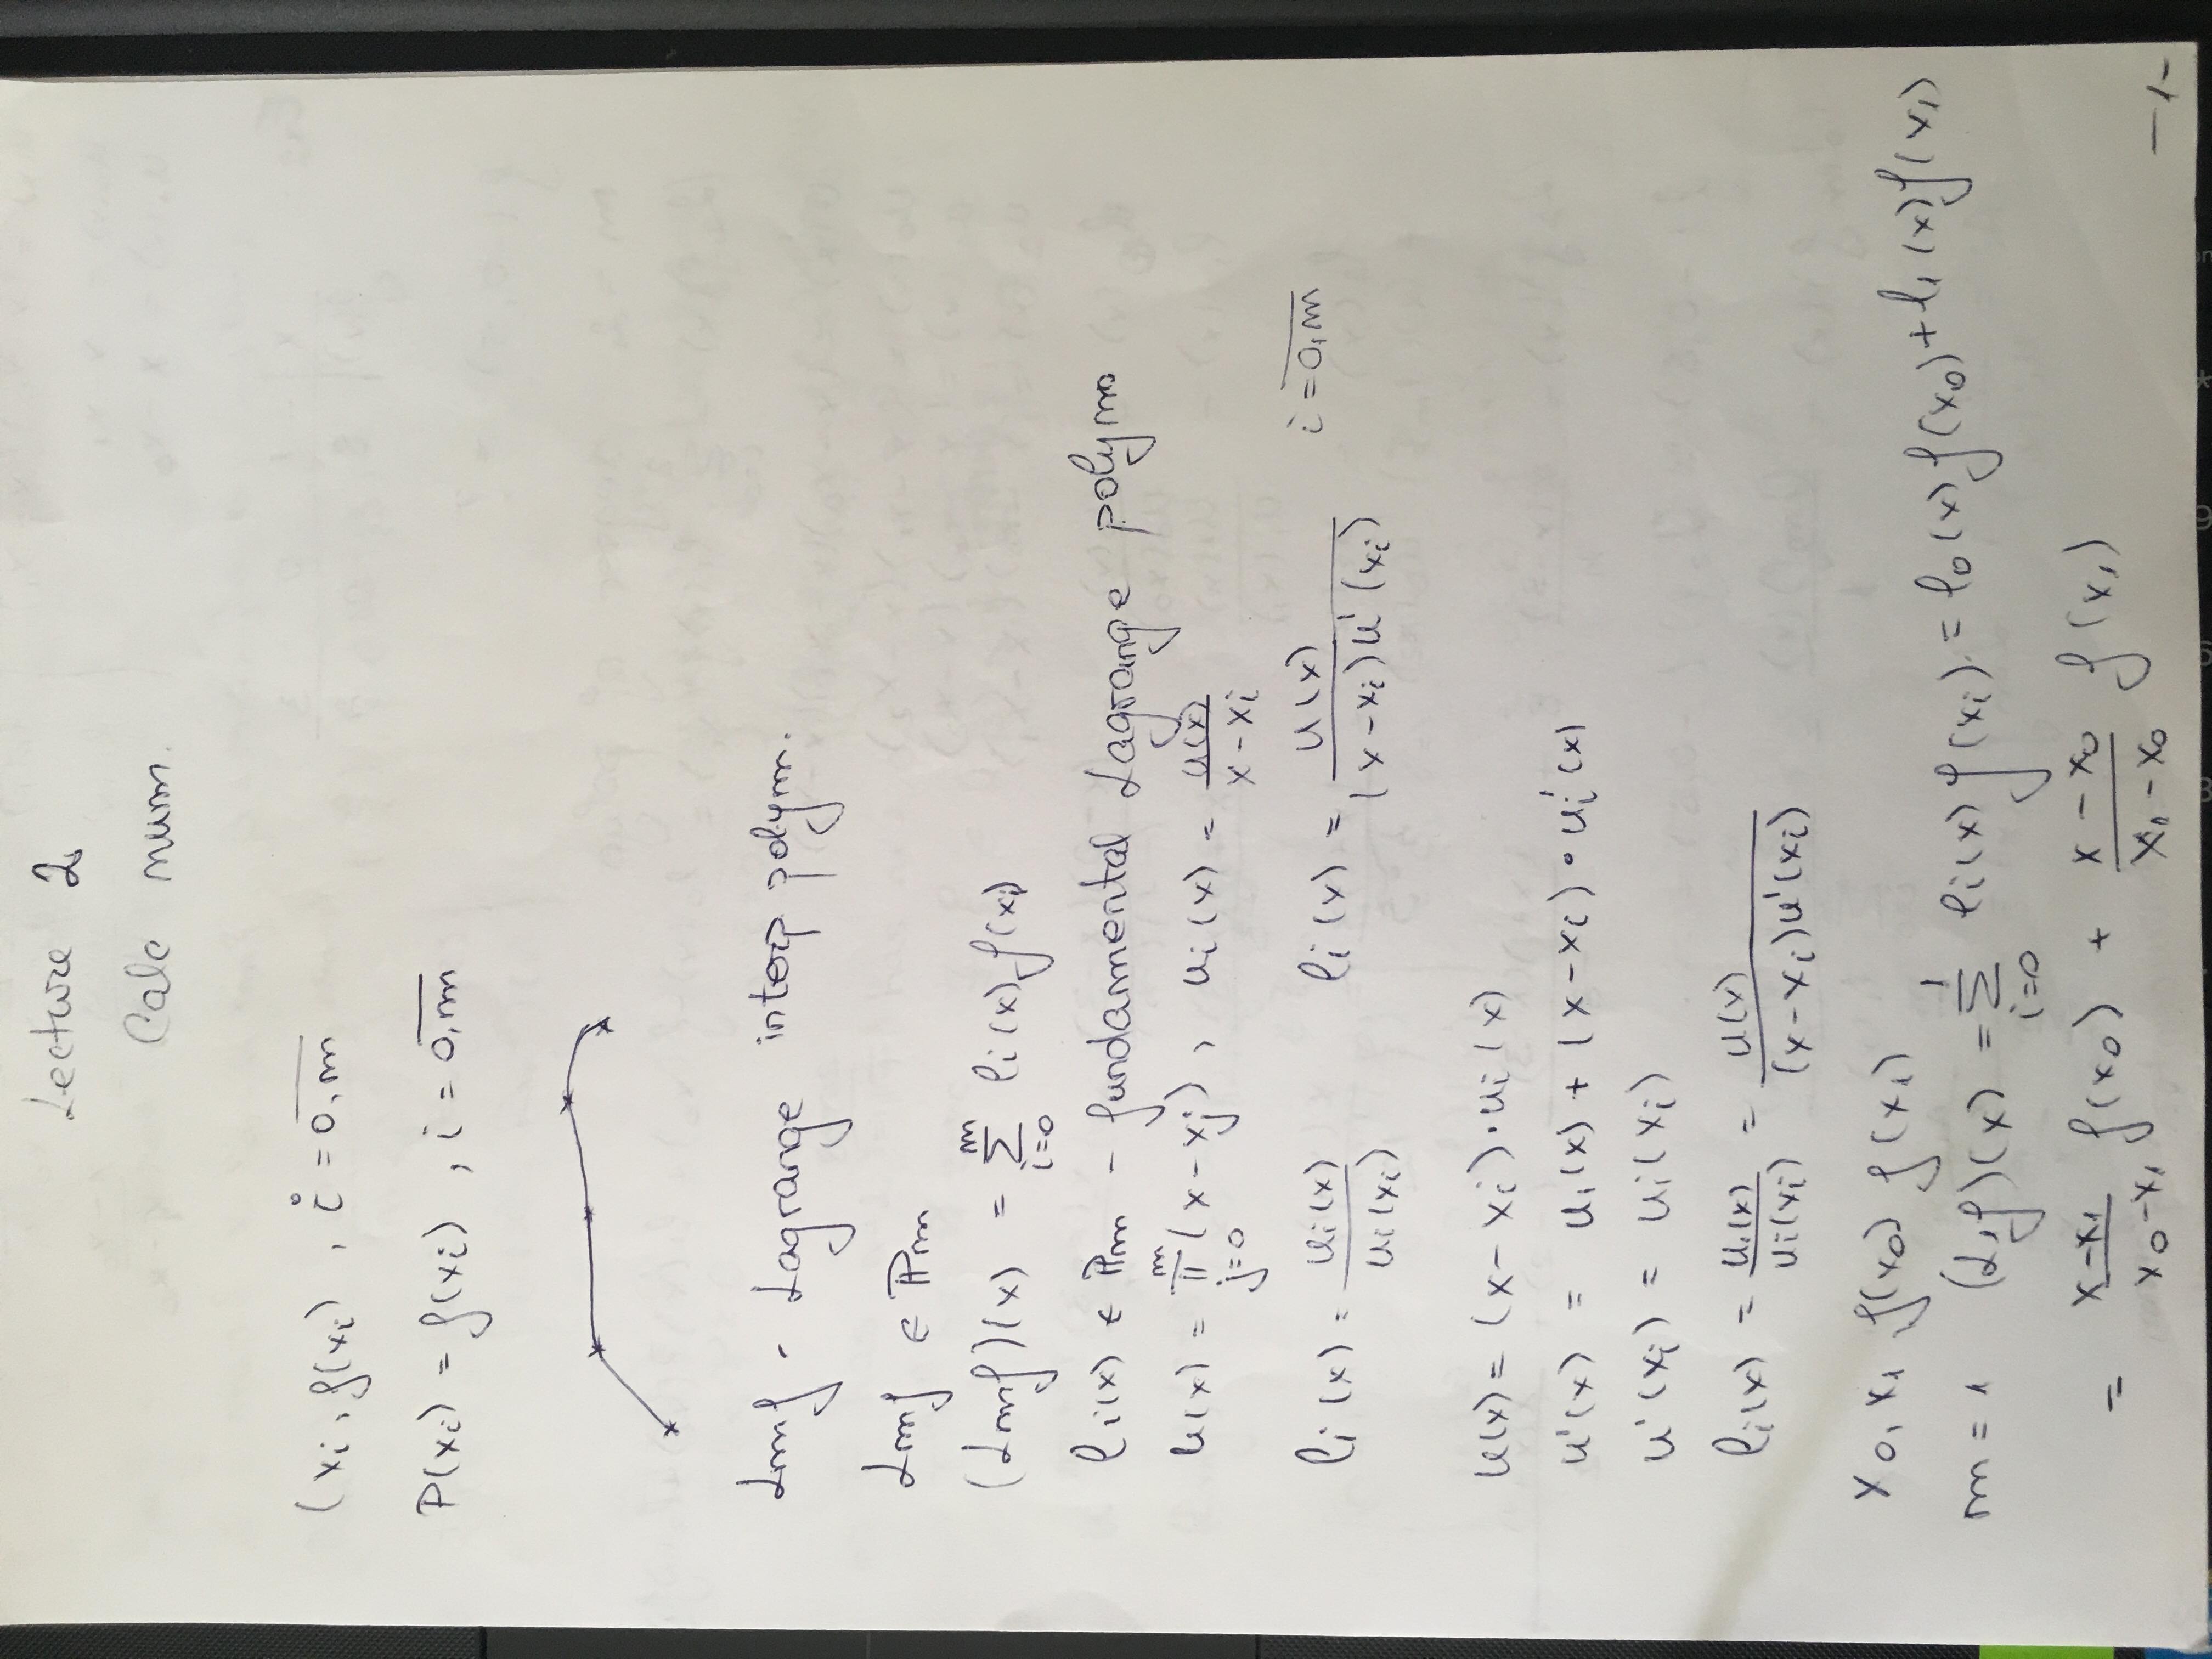 Lecture 2
Calc num.
(xi, f(xi) , i = \overline{0,m}
P(xi) = f(xi) , i = \overline{0,m}
Lmf - Lagrange interp polym.
Lmf ∈ ℙm
(Lmf)(x) = \sum_{i=0}^{m} li(x) f(xi)
li(x) ∈ ℙm - fundamental Lagrange polym
u(x) = \prod_{j=0}^{m} (x-xj) , ui(x) = \frac{u(x)}{x-xi}
li(x) = \frac{ui(x)}{ui(xi)} li(x) = \frac{u(x)}{(x-xi)u'(xi)} i = \overline{0,m}
u(x) = (x-xi)·ui(x)
u'(x) = ui(x) + (x-xi)·ui'(x)
u'(xi) = ui(xi)
li(x) = \frac{ui(x)}{ui(xi)} = \frac{u(x)}{(x-xi)u'(xi)}
x0, x1 f(x0) f(x1)
m = 1 (L1f)(x) = \sum_{i=0}^{1} li(x) f(xi) = l0(x) f(x0) + l1(x) f(x1)
= \frac{x-x1}{x0-x1} f(x0) + \frac{x-x0}{x1-x0} f(x1)
-1-